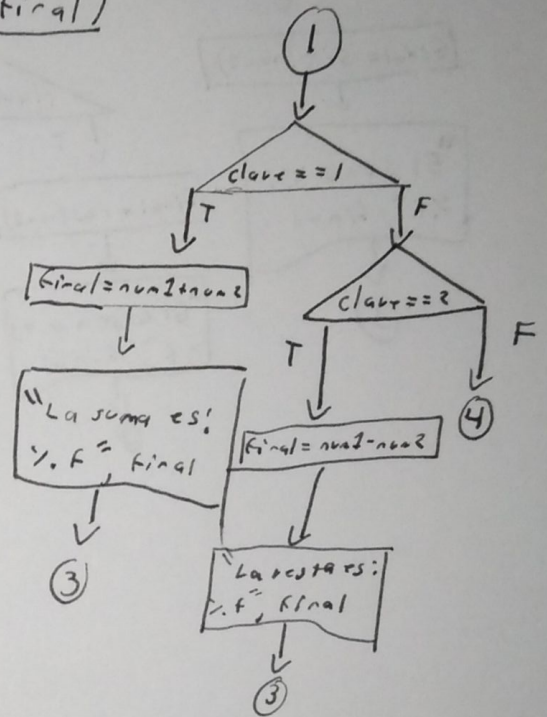 Final)
1
clave==1
T
F
Final=num1+num2
clave==2
T
F
"La suma es:
%.f", Final
4
Final=num1-num2
3
"La resta es:
%.f", Final
3